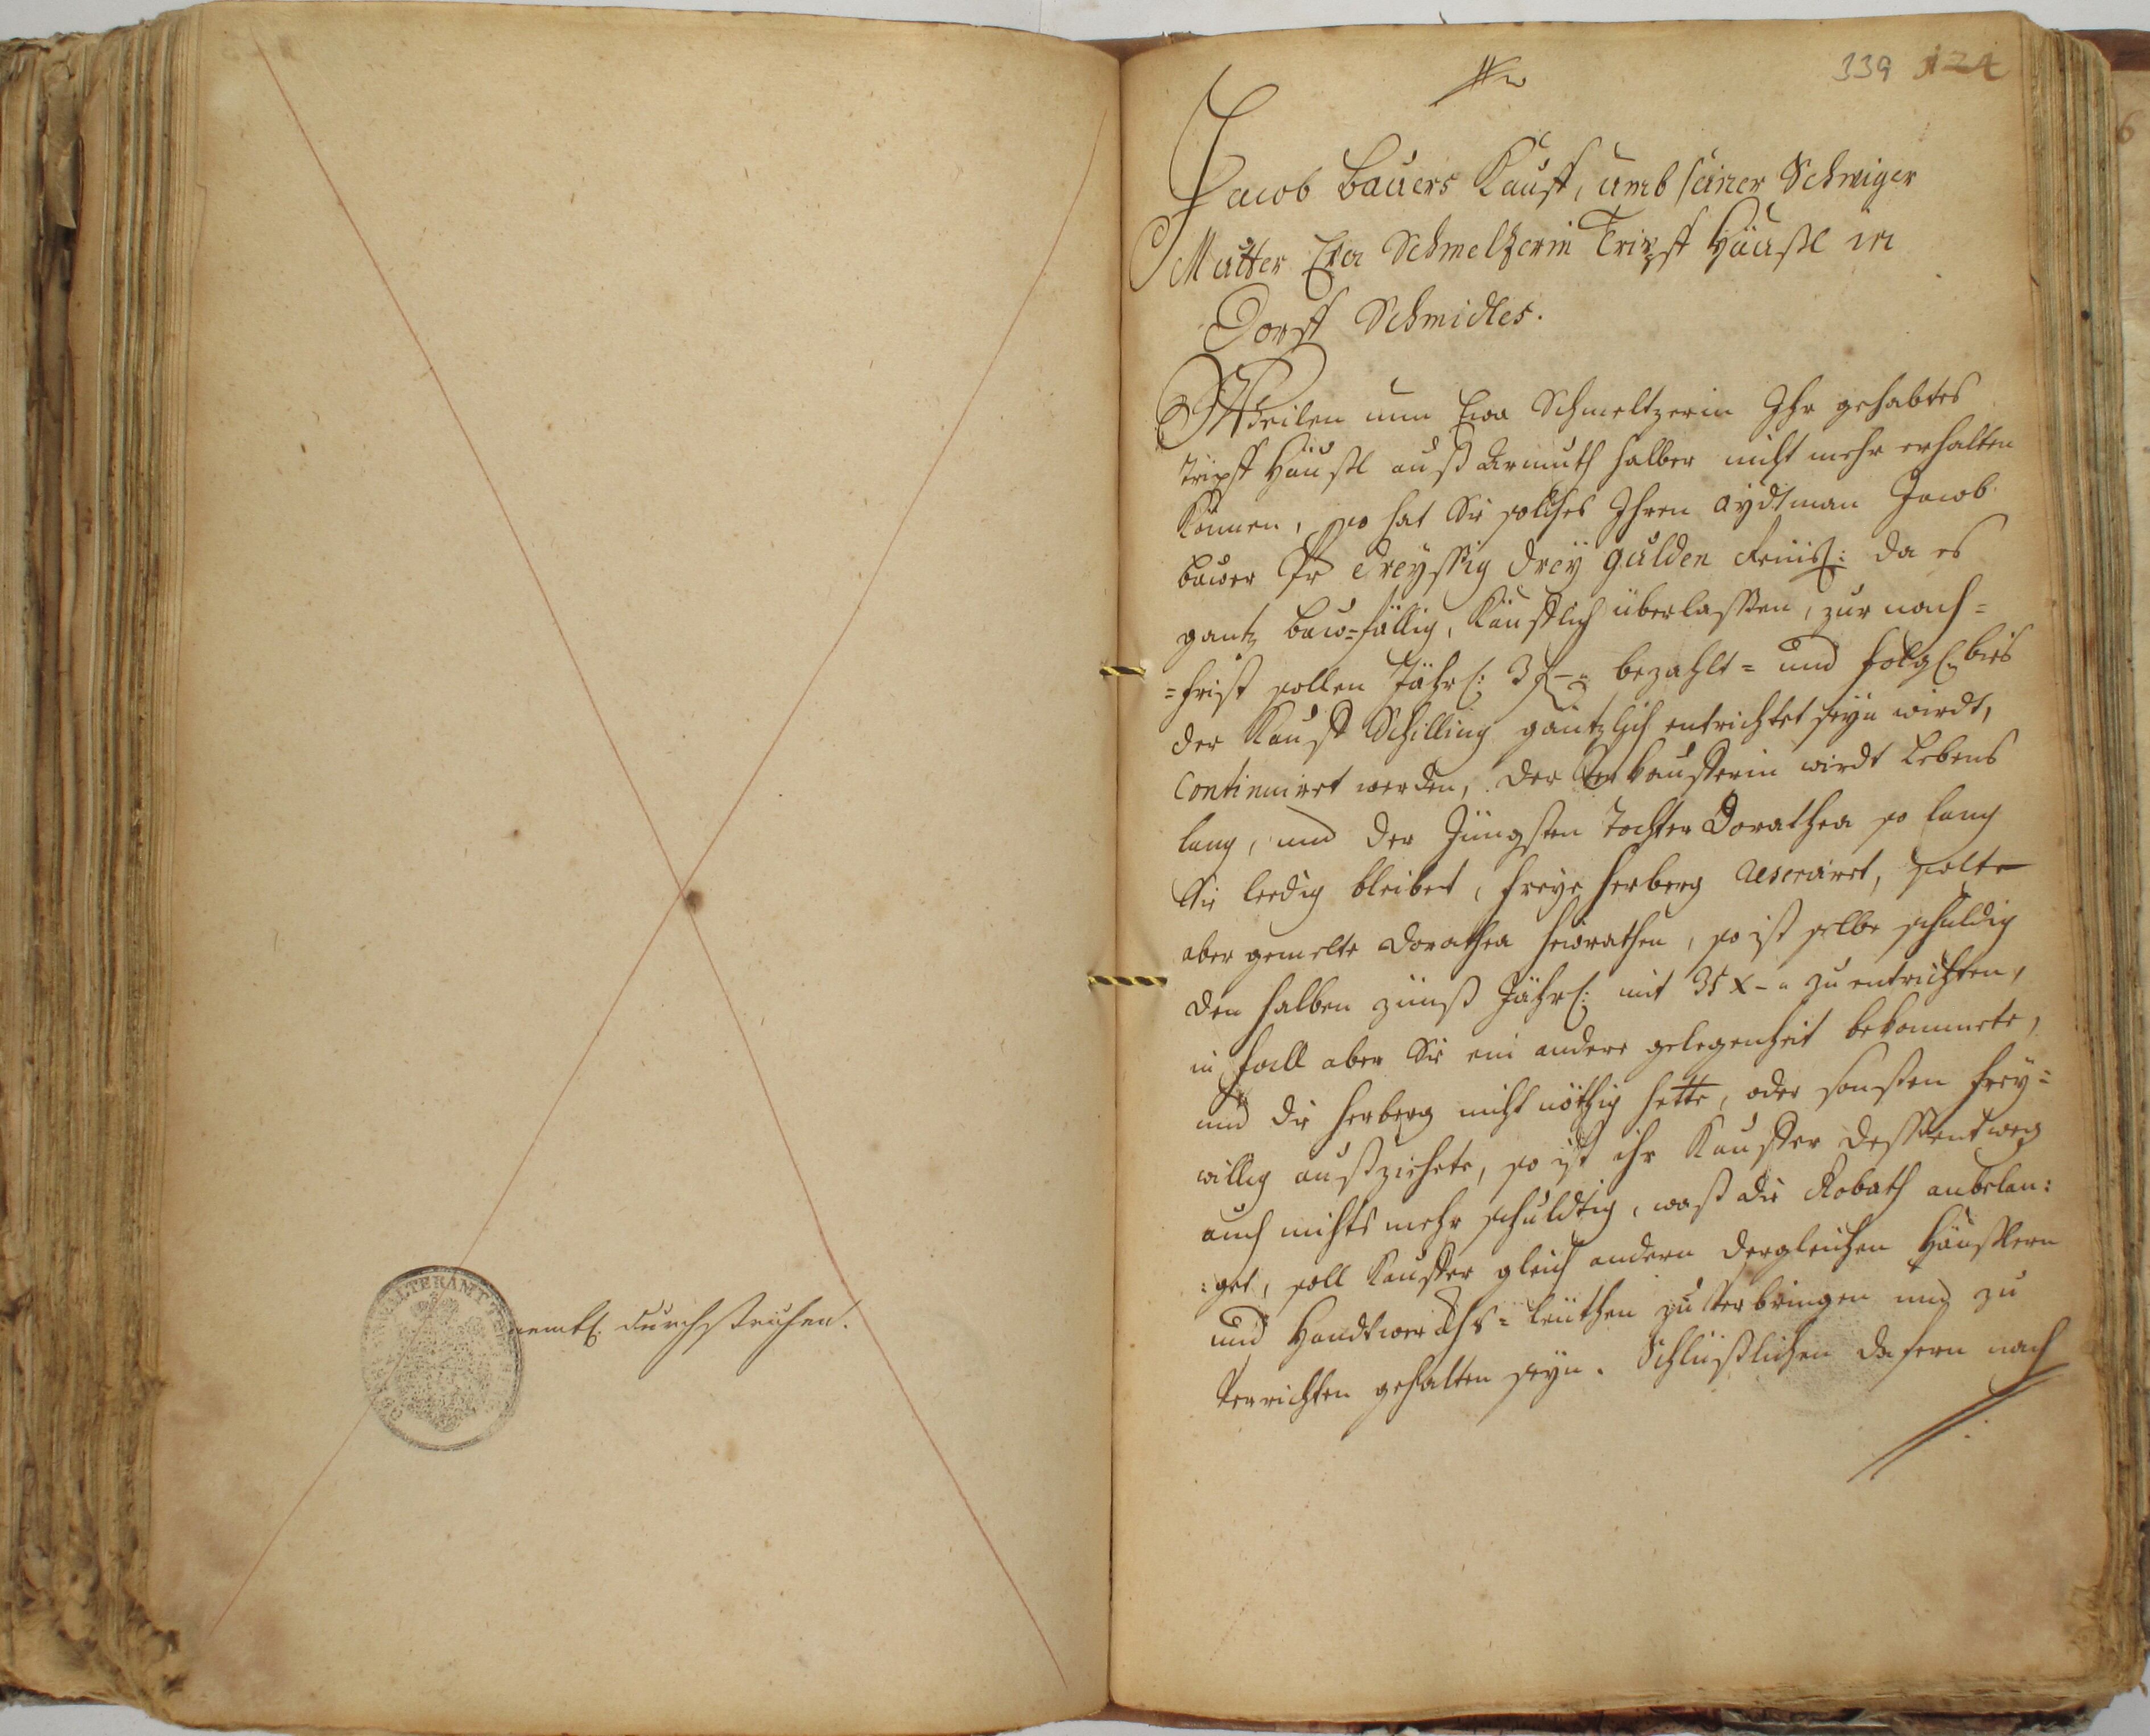 ämtl: durchstrichen.
339 124
Jacob Bauers Kauff, umb seiner Schwiger
Mutter Eva Schmeltzerin Tripff Häußl in
Dorff Schmidles.
Weilen nun Eva Schmeltzerin Ihr gehabtes
Tripff Häußl auß Armuth halber nicht mehr erhalten
Können, so hat Sie solches Ihren Aydtman Jacob
Bauer pr Dreyssig Drey gulden Reinis: da es
gantz baw=fällig, Käufflich überlassen, zur nach=
=frist sollen Jährl: 3 f – bezahlt= und folgl: bies
der Kauff Schilling gäntzlich entrichtet seyn wirdt,
Continuiret werden, der Verkaufferin wirdt Lebens
lang, und der Jüngsten Tochter Dorathea so lang
Sie leedig bleibet, freye Herberg Reserviret, solte
aber gemelte Dorathea heürathen, so ist selbe schuldig
den halben zünß Jährl: mit 35 x – zu entrichten,
in fall aber Sie ein andere gelegenheit bekommete,
und die Herberg nicht nöthig hette, oder sonsten frey=
willig außziehete, so ist ihr Kauffer dessentweg
auch nichts mehr schuldtig, waß die Robath anbelan:
:get, soll Kauffer gleich andern dergleichen Häußlern
und Handtwerckhs=leüthen zu verbringen und zu
verrichten gehalten seyn. Schlüßlichen dafern nach